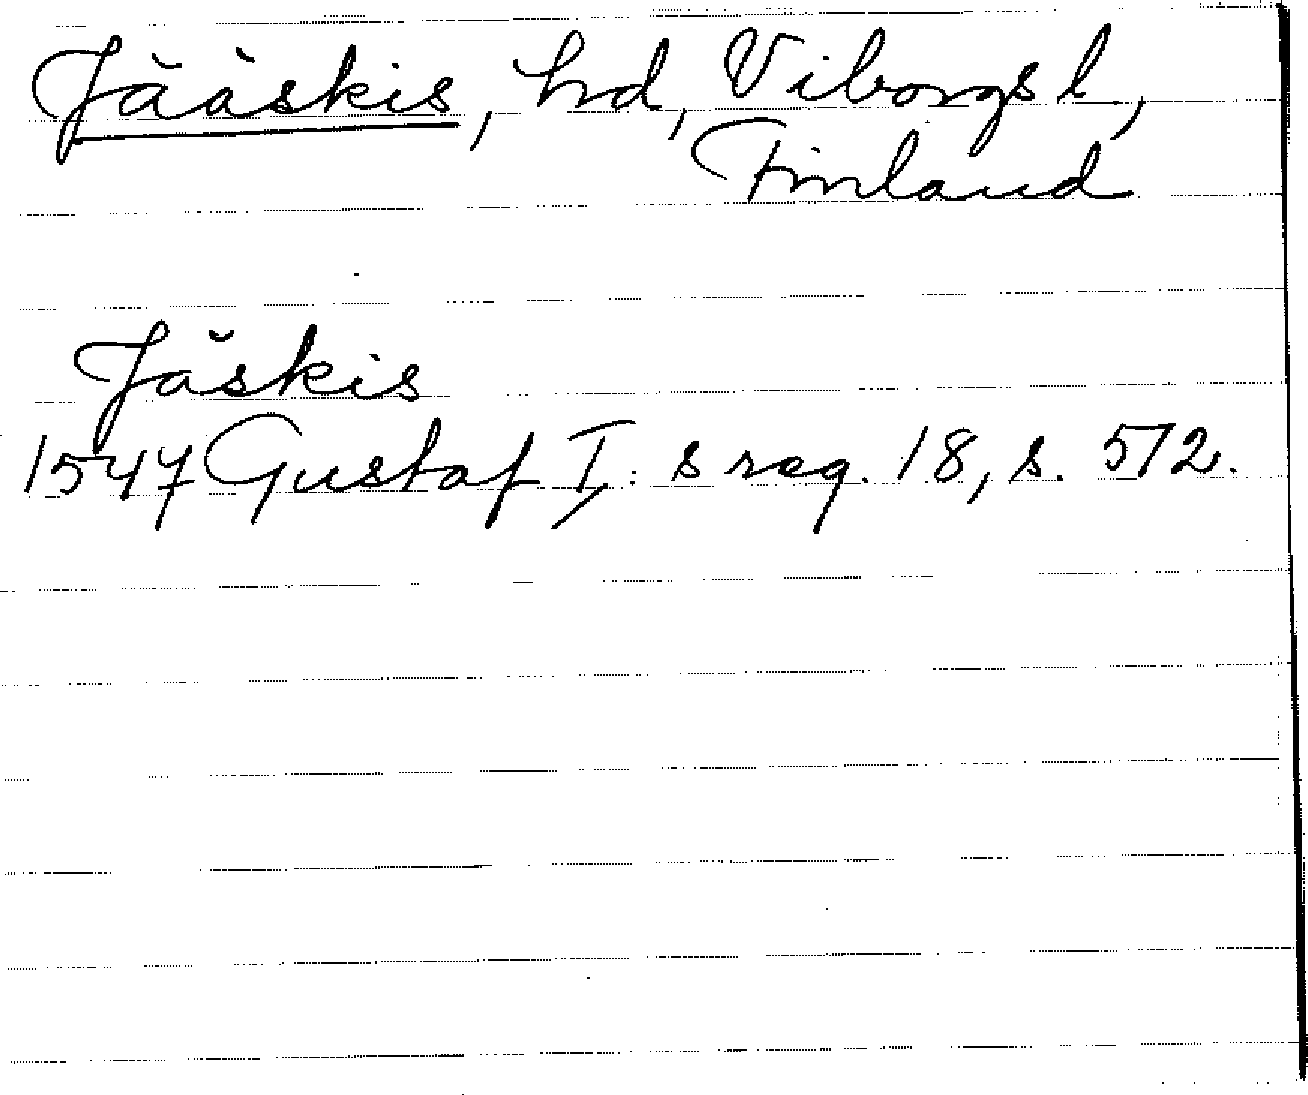 Jääskis, hd, Viborgs l,
Finland
Jäskis
1547 Gustaf I: s reg. 18, s. 572.